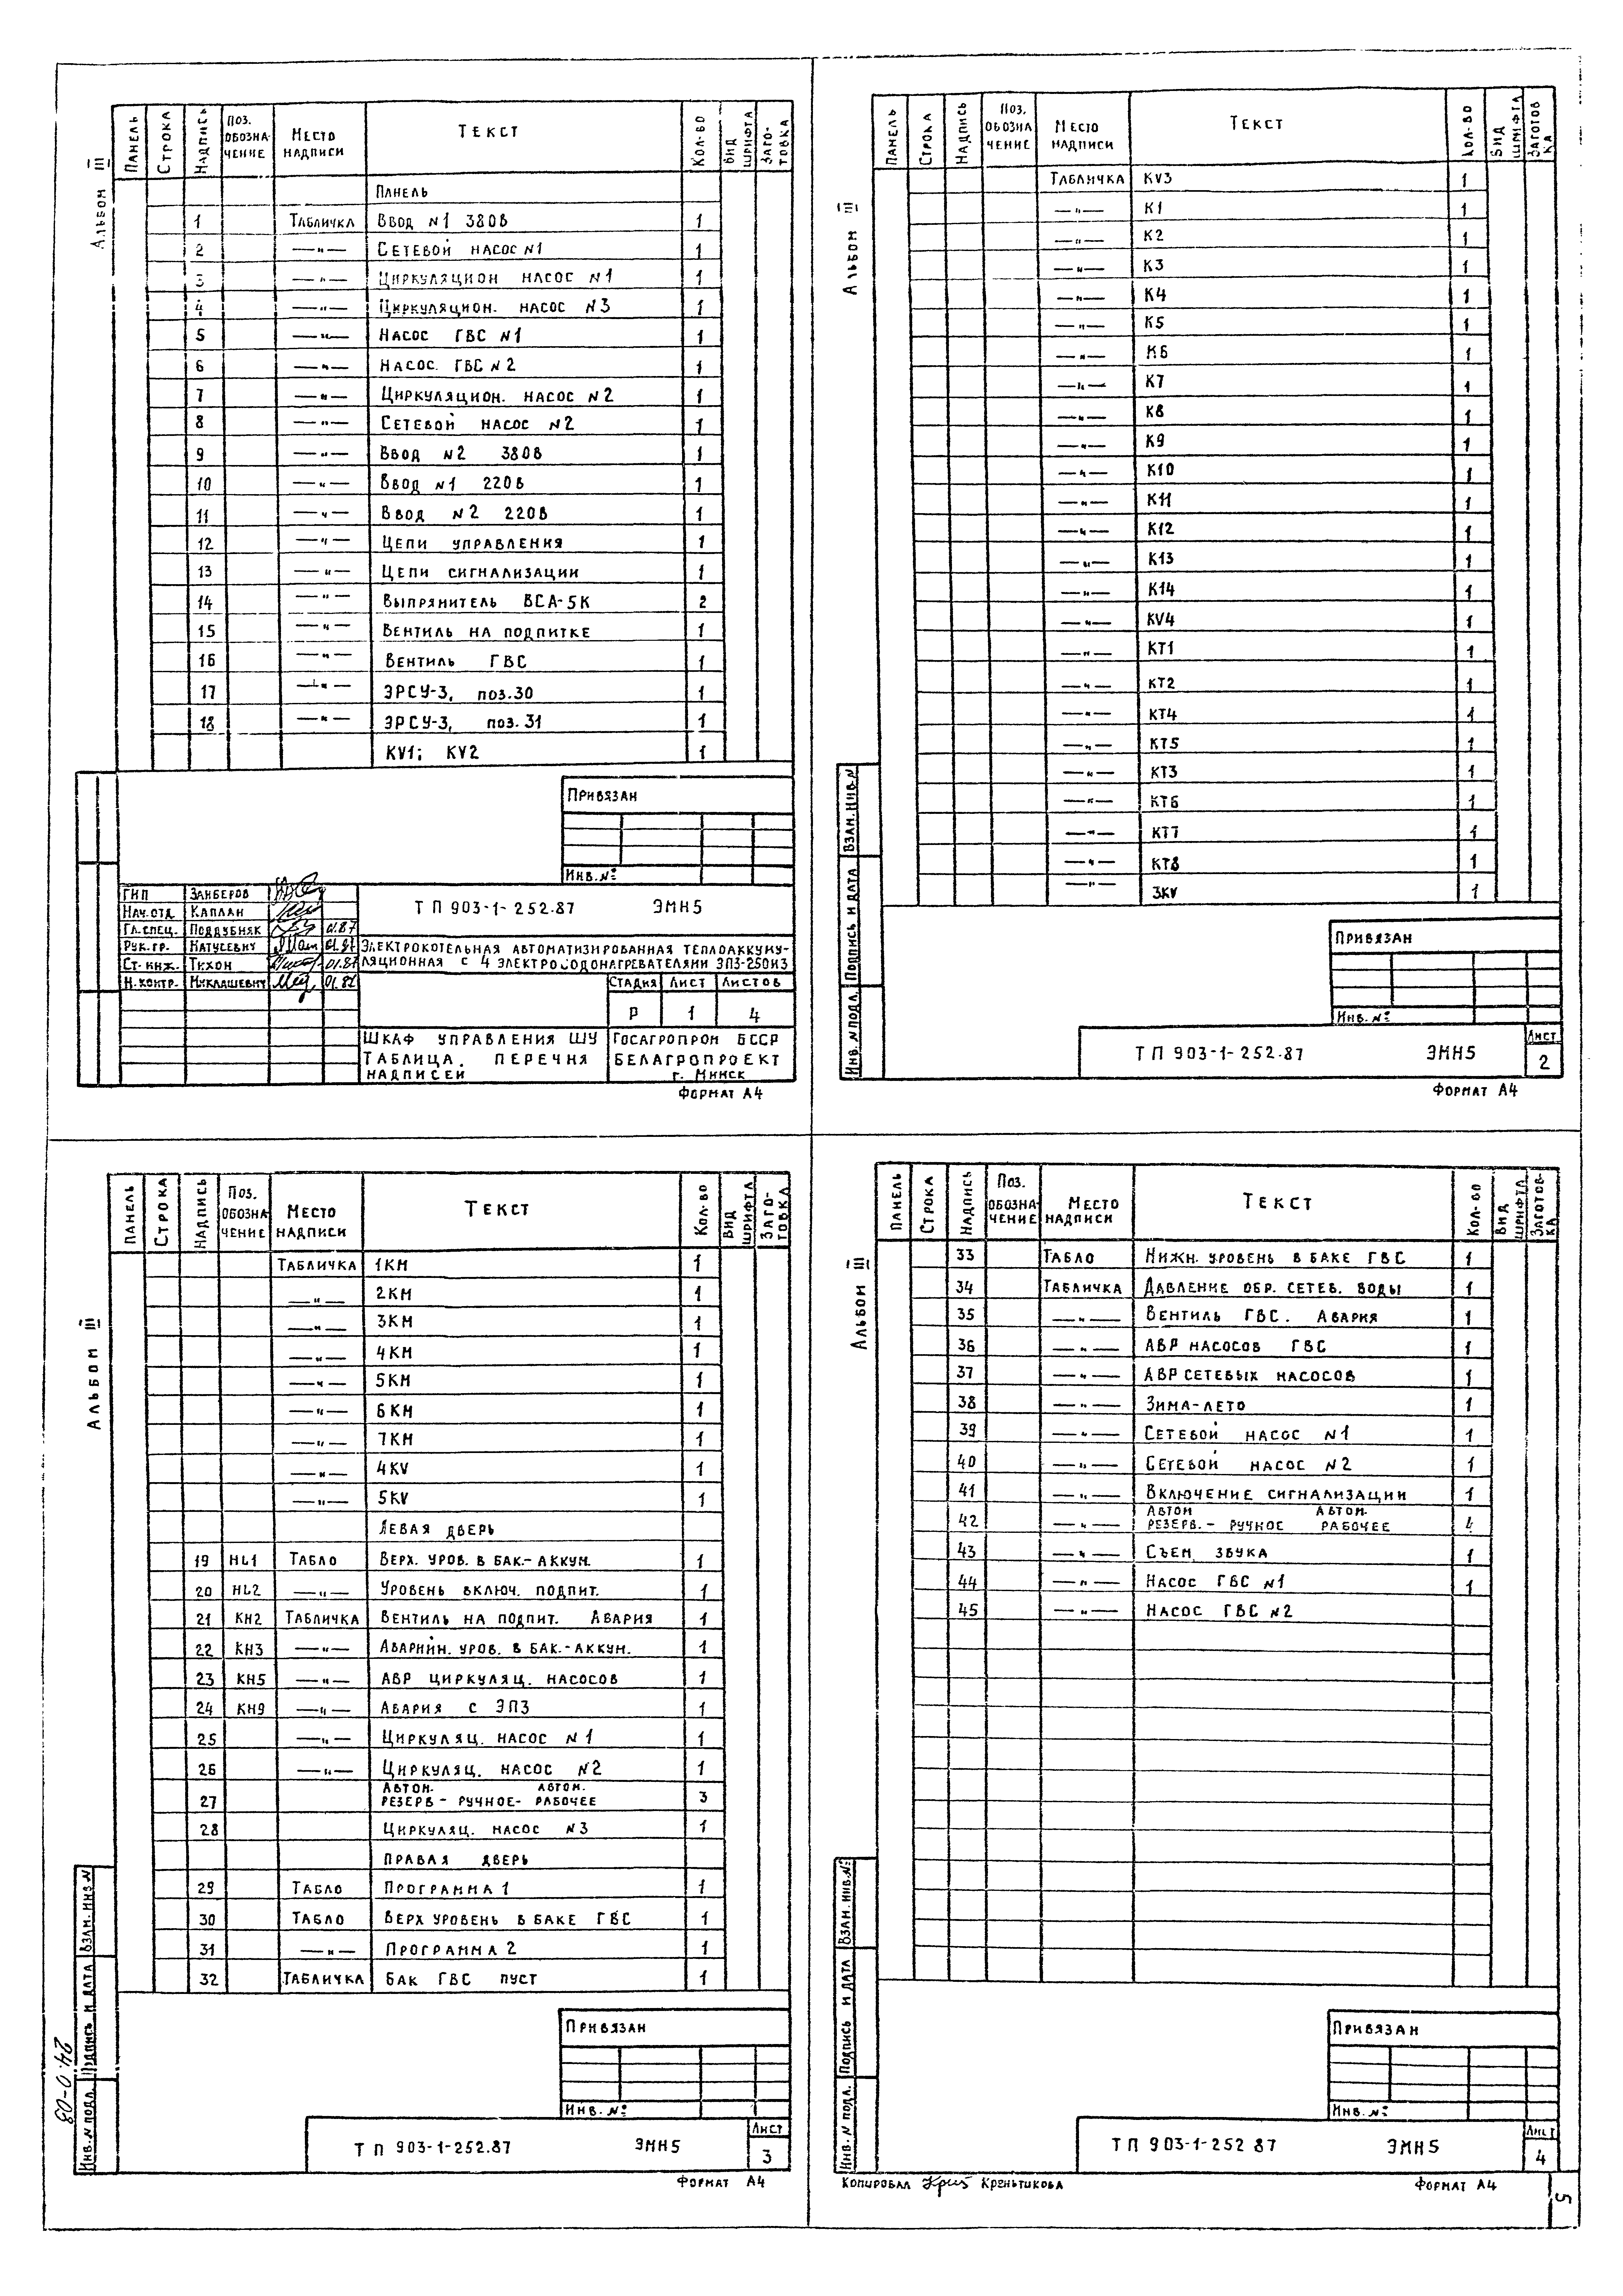 Альбом III
Панель Строка Надпись Поз. обозначение Место надписи Текст Кол-во Вид шрифта Заготовка
Панель
1 Табличка Ввод N1 380В 1
2 —"— Сетевой насос N1 1
3 —"— Циркуляцион насос N1 1
4 —"— Циркуляцион. насос N3 1
5 —"— Насос ГВС N1 1
6 —"— Насос. ГВС N2 1
7 —"— Циркуляцион. насос N2 1
8 —"— Сетевой насос N2 1
9 —"— Ввод N2 380В 1
10 —"— Ввод N1 220В 1
11 —"— Ввод N2 220В 1
12 —"— Цепи управления 1
13 —"— Цепи сигнализации 1
14 —"— Выпрямитель ВСА-5К 2
15 —"— Вентиль на подпитке 1
16 —"— Вентиль ГВС 1
17 —"— ЭРСУ-3, поз.30 1
18 —"— ЭРСУ-3, поз.31 1
KV1; KV2 1
Привязан
Инв.№
ГИП Занберов
Нач.отд Каплан
Гл.спец. Поддубняк 01.87
Рук.гр. Матусевич 01.87
Ст.инж. Тихон 01.87
Н.контр. Миклашевич 01.87
ТП 903-1-252.87 ЭМН5
Электрокотельная автоматизированная теплоаккуму-
ляционная с 4 электроводонагревателями ЭПЗ-250И3
Стадия Лист Листов
Р 1 4
Шкаф управления ШУ
Таблица перечня
надписей
Госагропром БССР
Белагропроект
г. Минск
Формат А4
Альбом III
Панель Строка Надпись Поз. обозначение Место надписи Текст Кол-во Вид шрифта Заготовка
Табличка KV3 1
—"— К1 1
—"— К2 1
—"— К3 1
—"— К4 1
—"— К5 1
—"— К6 1
—"— К7 1
—"— К8 1
—"— К9 1
—"— К10 1
—"— К11 1
—"— К12 1
—"— К13 1
—"— К14 1
—"— KV4 1
—"— КТ1 1
—"— КТ2 1
—"— КТ4 1
—"— КТ5 1
—"— КТ3 1
—"— КТ6 1
—"— КТ7 1
—"— КТ8 1
—"— 3KV 1
Инв.N подл. Подпись и дата Взам.инв.N
Привязан
Инв.№
ТП 903-1-252.87 ЭМН5
Лист
2
Формат А4
Альбом III
Панель Строка Надпись Поз. обозначение Место надписи Текст Кол-во Вид шрифта Заготовка
Табличка 1КМ 1
—"— 2КМ 1
—"— 3КМ 1
—"— 4КМ 1
—"— 5КМ 1
—"— 6КМ 1
—"— 7КМ 1
—"— 4KV 1
—"— 5KV 1
Левая дверь
19 HL1 Табло Верх. уров. в бак.-аккум. 1
20 HL2 —"— Уровень включ. подпит. 1
21 КН2 Табличка Вентиль на подпит. Авария 1
22 КН3 —"— Аварийн. уров. в бак.-аккум. 1
23 КН5 —"— АВР циркуляц. насосов 1
24 КН9 —"— Авария с ЭПЗ 1
25 —"— Циркуляц. насос N1 1
26 —"— Циркуляц. насос N2 1
Автом. Автом.
27 резерв - ручное - рабочее 3
28 Циркуляц. насос N3 1
Правая дверь
29 Табло Программа 1 1
30 Табло Верх уровень в баке ГВС 1
31 —"— Программа 2 1
32 Табличка Бак ГВС пуст 1
Инв.N подл. Подпись и дата Взам.инв.N
24.0-08
Привязан
Инв.№
ТП 903-1-252.87 ЭМН5
Лист
3
Формат А4
Альбом III
Панель Строка Надпись Поз. обозначение Место надписи Текст Кол-во Вид шрифта Заготовка
33 Табло Нижн. уровень в баке ГВС 1
34 Табличка Давление обр. сетев. воды 1
35 —"— Вентиль ГВС. Авария 1
36 —"— АВР насосов ГВС 1
37 —"— АВР сетевых насосов 1
38 —"— Зима-лето 1
39 —"— Сетевой насос N1 1
40 —"— Сетевой насос N2 1
41 —"— Включение сигнализации 1
Автом Автом.
42 —"— резерв. - ручное рабочее 4
43 —"— Съем. звука 1
44 —"— Насос ГВС N1 1
45 —"— Насос ГВС N2
Инв.N подл. Подпись и дата Взам.инв.№
Привязан
Инв.№
ТП 903-1-252 87 ЭМН5
Лист
4
Копировал Креньтикова
Формат А4
5